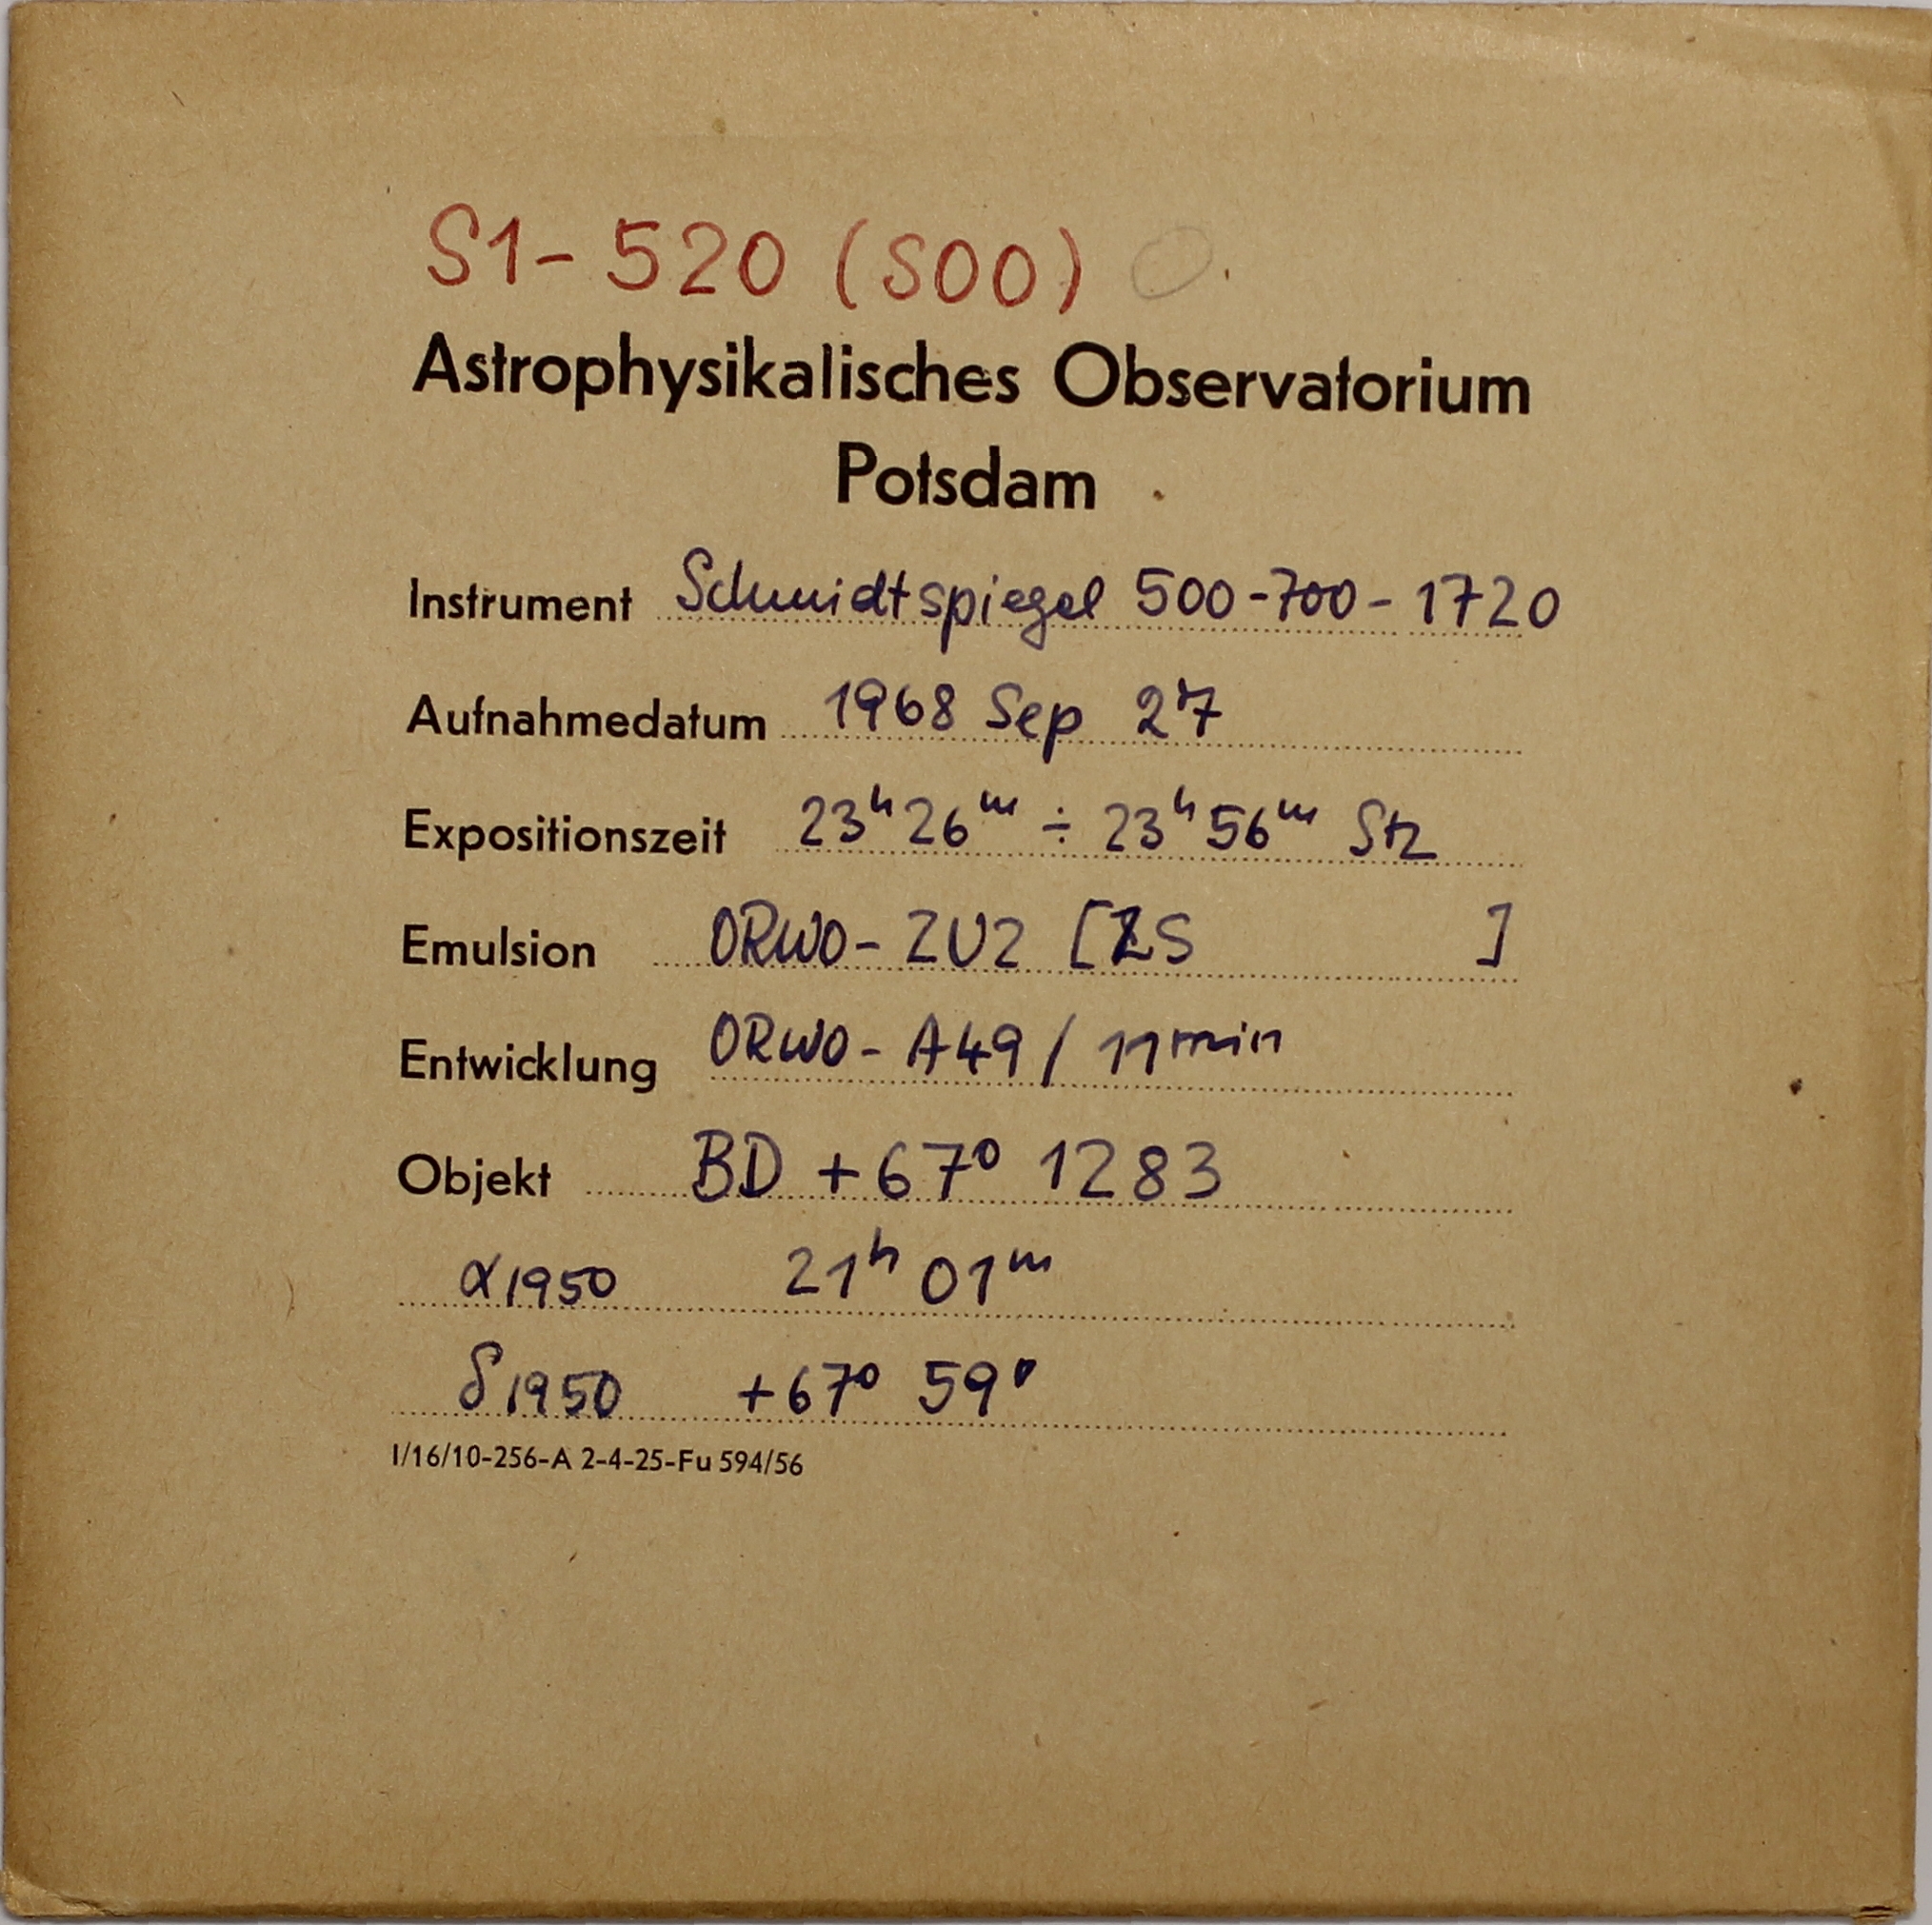 S1-520 (S00)
Astrophysikalisches Observatorium
Potsdam
Instrument Schmidtspiegel 500-700-1720
Aufnahmedatum 1968 Sep 27
Expositionszeit 23ʰ26ᵐ ÷ 23ʰ56ᵐ Stz
Emulsion ORWO-ZU2 [ZS ]
Entwicklung ORWO-A49/11min
Objekt BD +67° 1283
α1950 21ʰ 01ᵐ
δ1950 +67° 59'
I/16/10-256-A 2-4-25-Fu 594/56